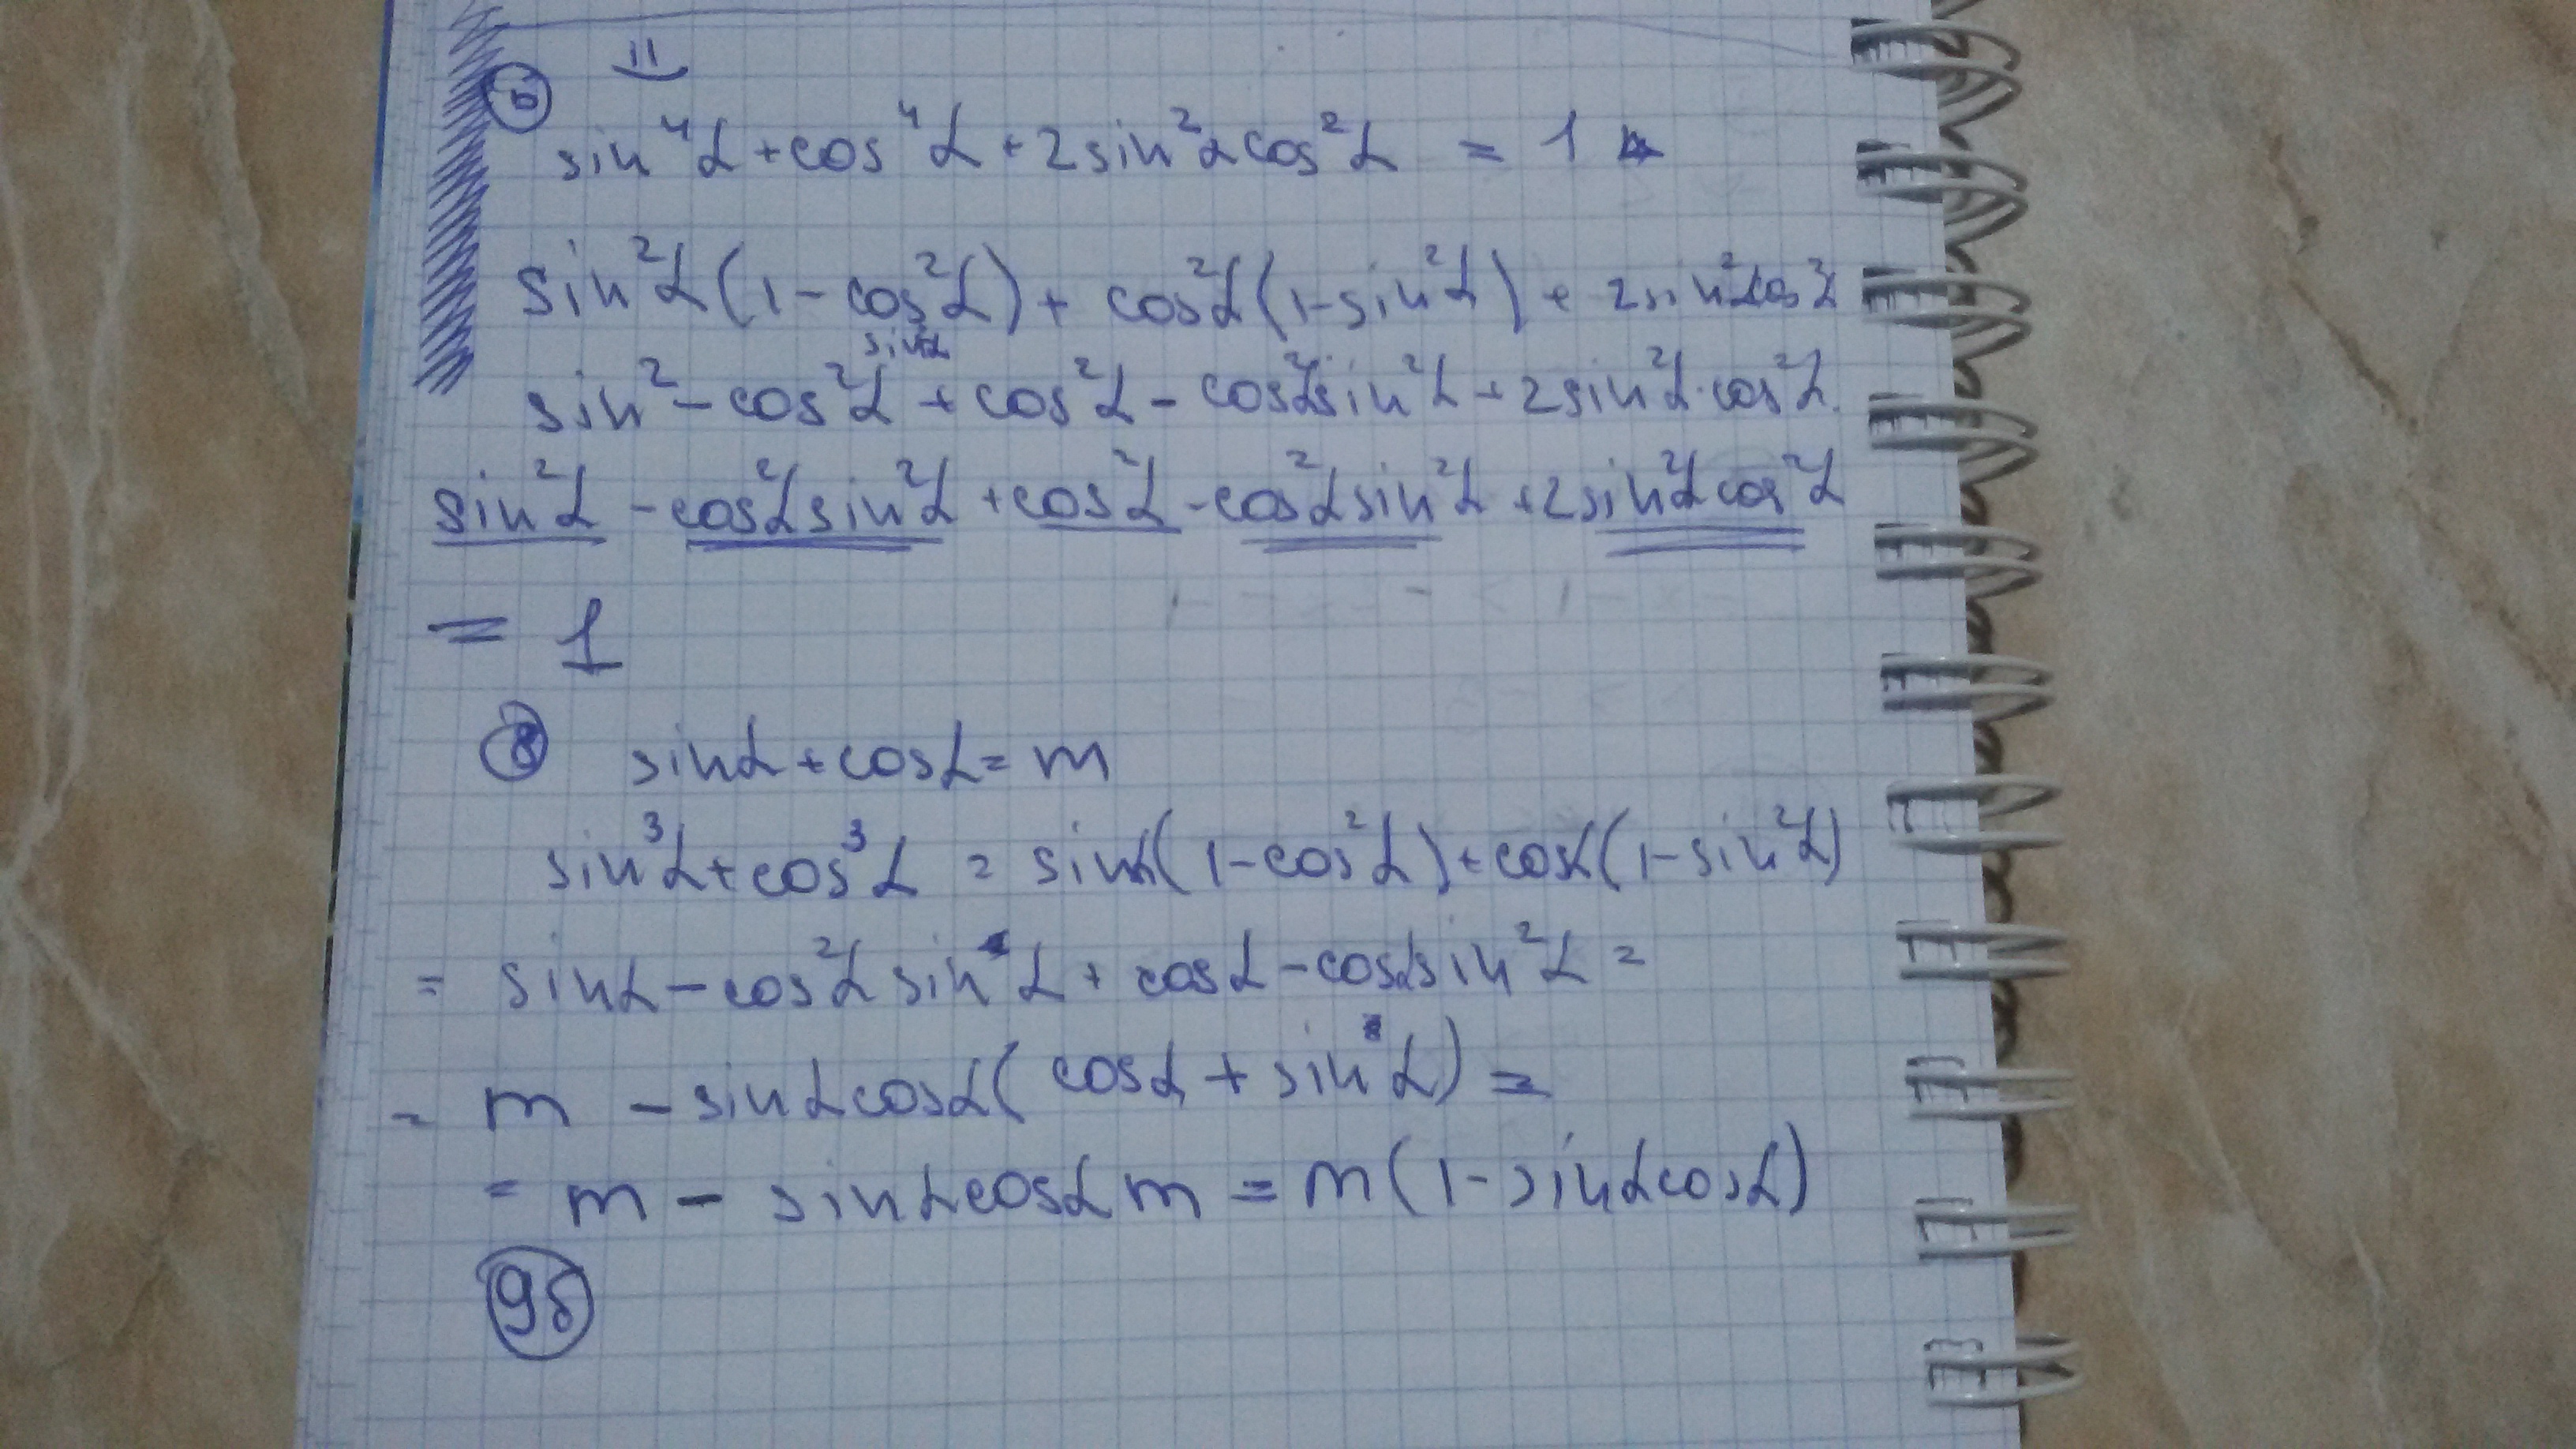 II
б
sin⁴α + cos⁴α + 2sin²α cos²α = 1
sin²α(1 - cos²α) + cos²α(1 - sin²α) + 2sin²αcos²α
sin²α
sin² - cos²α + cos²α - cos²αsin²α + 2sin²α·cos²α
sin²α - cos²αsin²α + cos²α - cos²αsin²α + 2sin²αcos²α
= 1
8 sinα + cosα = m
sin³α + cos³α = sinα(1 - cos²α) + cosα(1 - sin²α)
= sinα - cos²α sinα + cosα - cosαsin²α =
= m - sinαcosα(cosα + sinα) =
= m - sinαcosα m = m(1 - sinαcosα)
9б